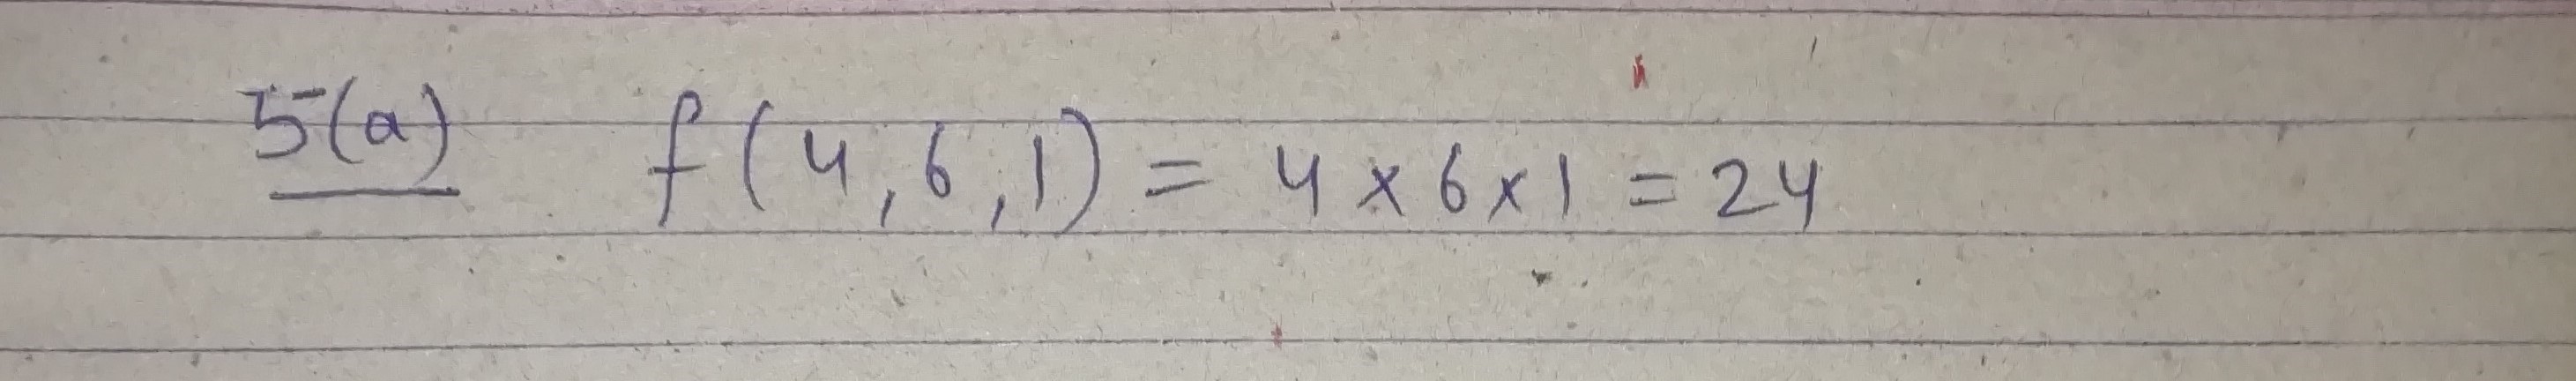 5(a) f(4,6,1) = 4 × 6 × 1 = 24